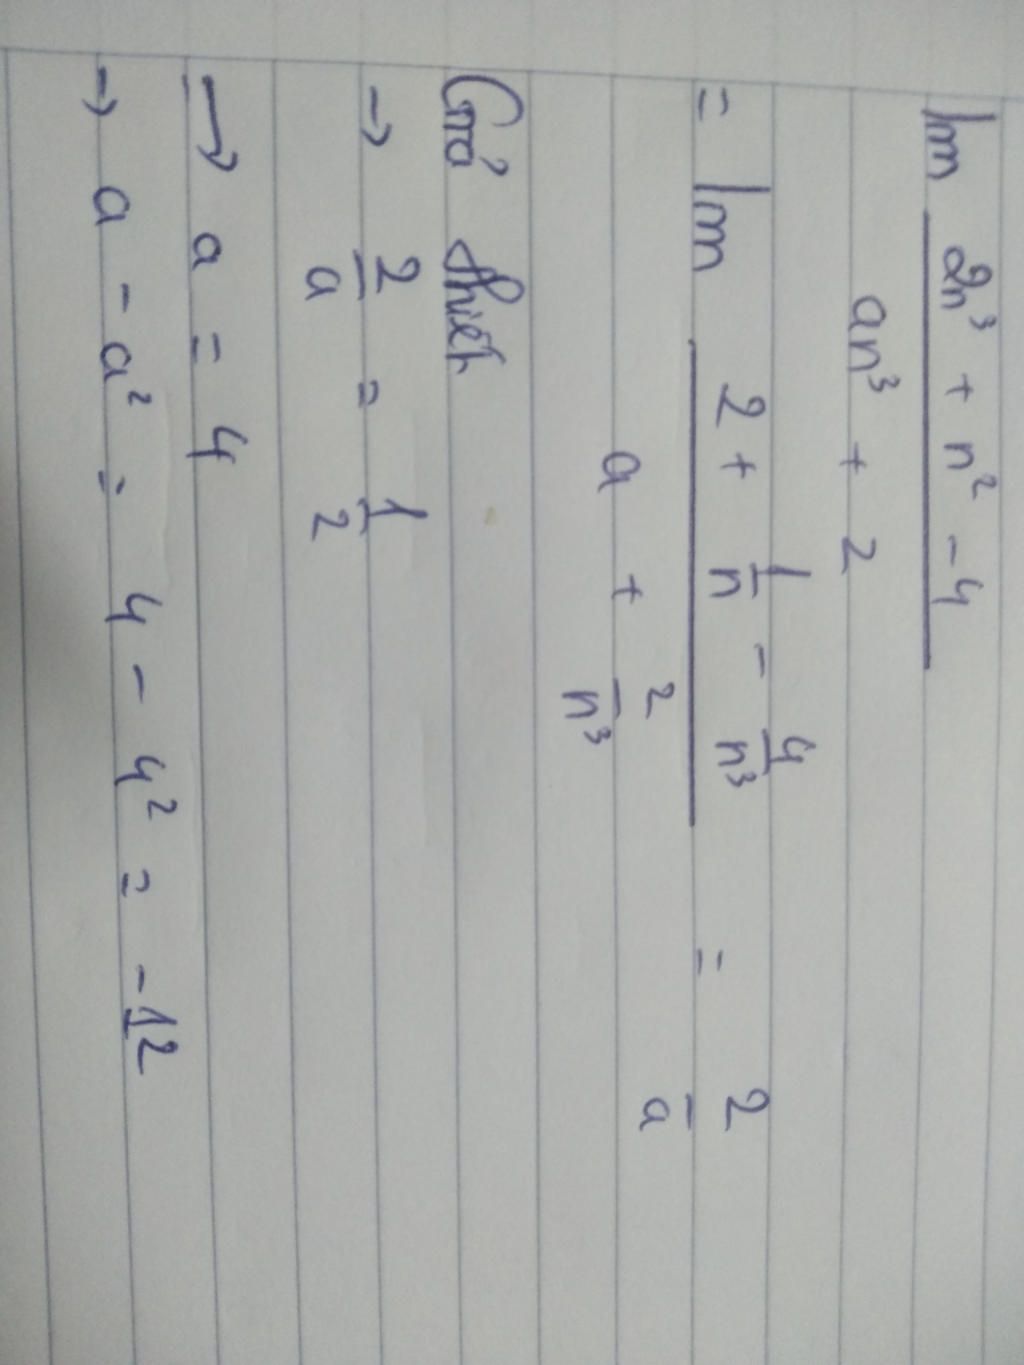 lim (2n³ + n² - 4)/(an³ + 2)
= lim (2 + 1/n - 4/n³)/(a + 2/n³) = 2/a
Giả thiết
→ 2/a = 1/2
→ a = 4
→ a - a² = 4 - 4² = -12